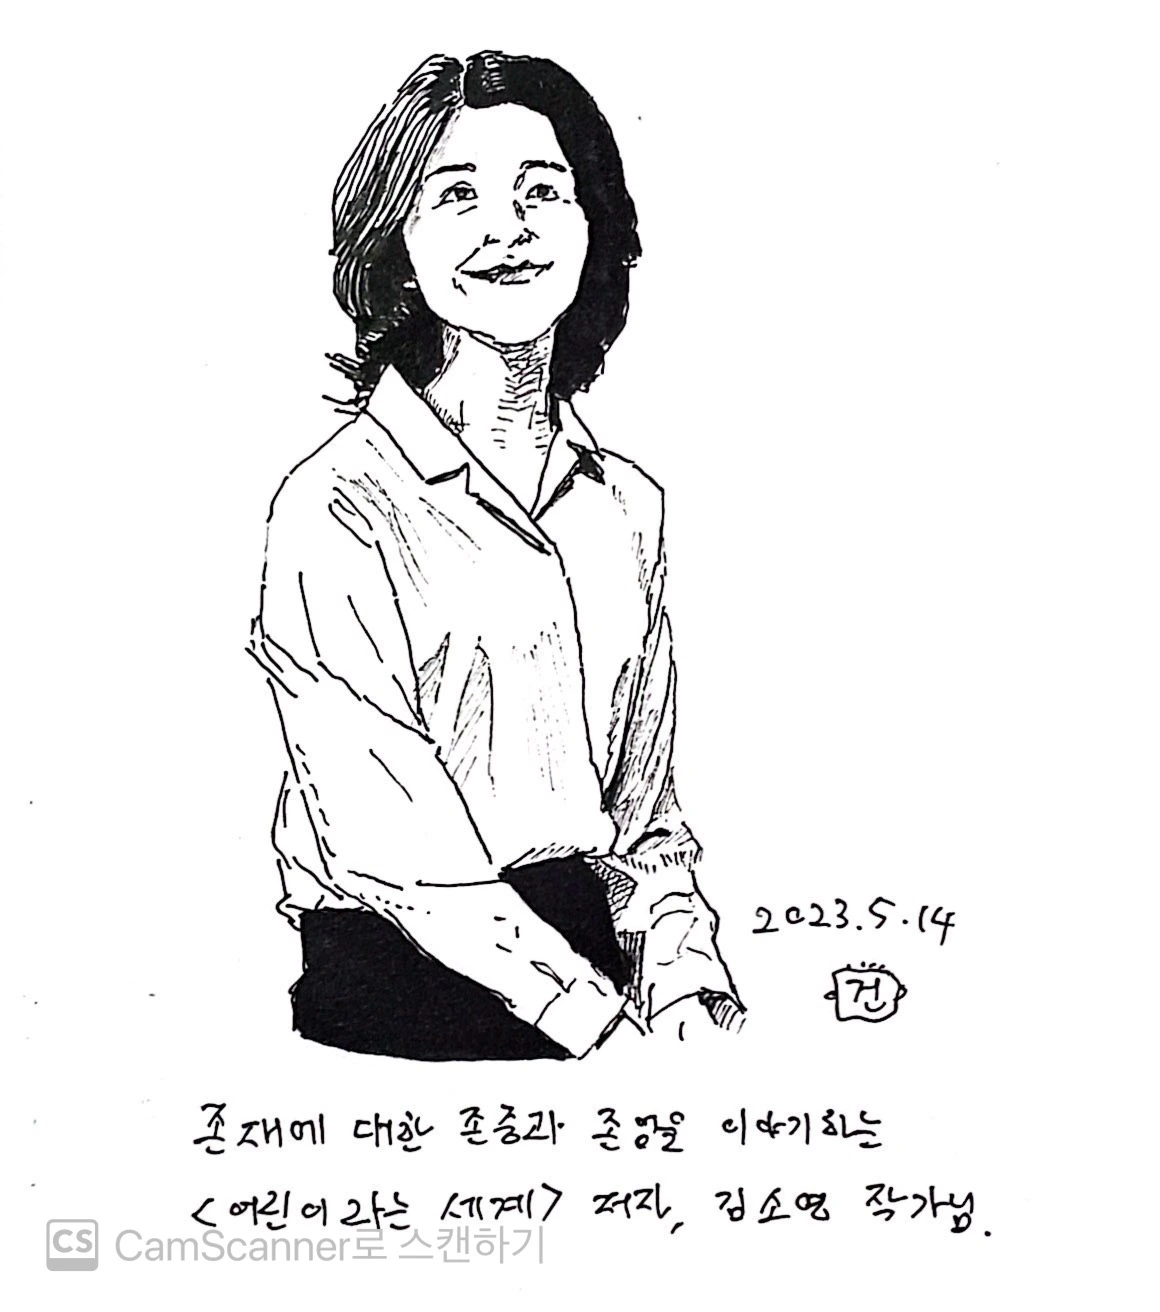 2023.5.14
건
존재에 대한 존중과 존엄을 이야기하는
<어린이라는 세계> 저자, 김소영 작가님.
CS CamScanner로 스캔하기